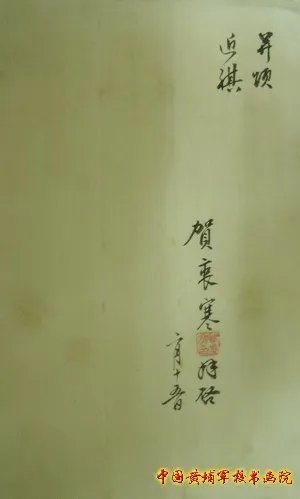 并颂
近祺
賀衷寒 拜启
六月十五日
中国黄埔军校书画院